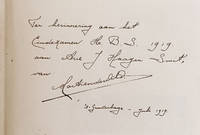 Ter herinnering aan het
Eindexamen H.B.S. 1919
aan Arie J Haagen Smit,
van
's-Gravenhage - Juli 1919